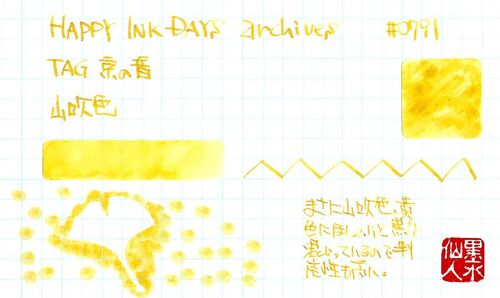 HAPPY INK-DAYS archives #0791
TAG 京の音
山吹色
まさに山吹色。黄
色にほんのりと黒が
混じっているので判
性も高い。
墨水
仙人